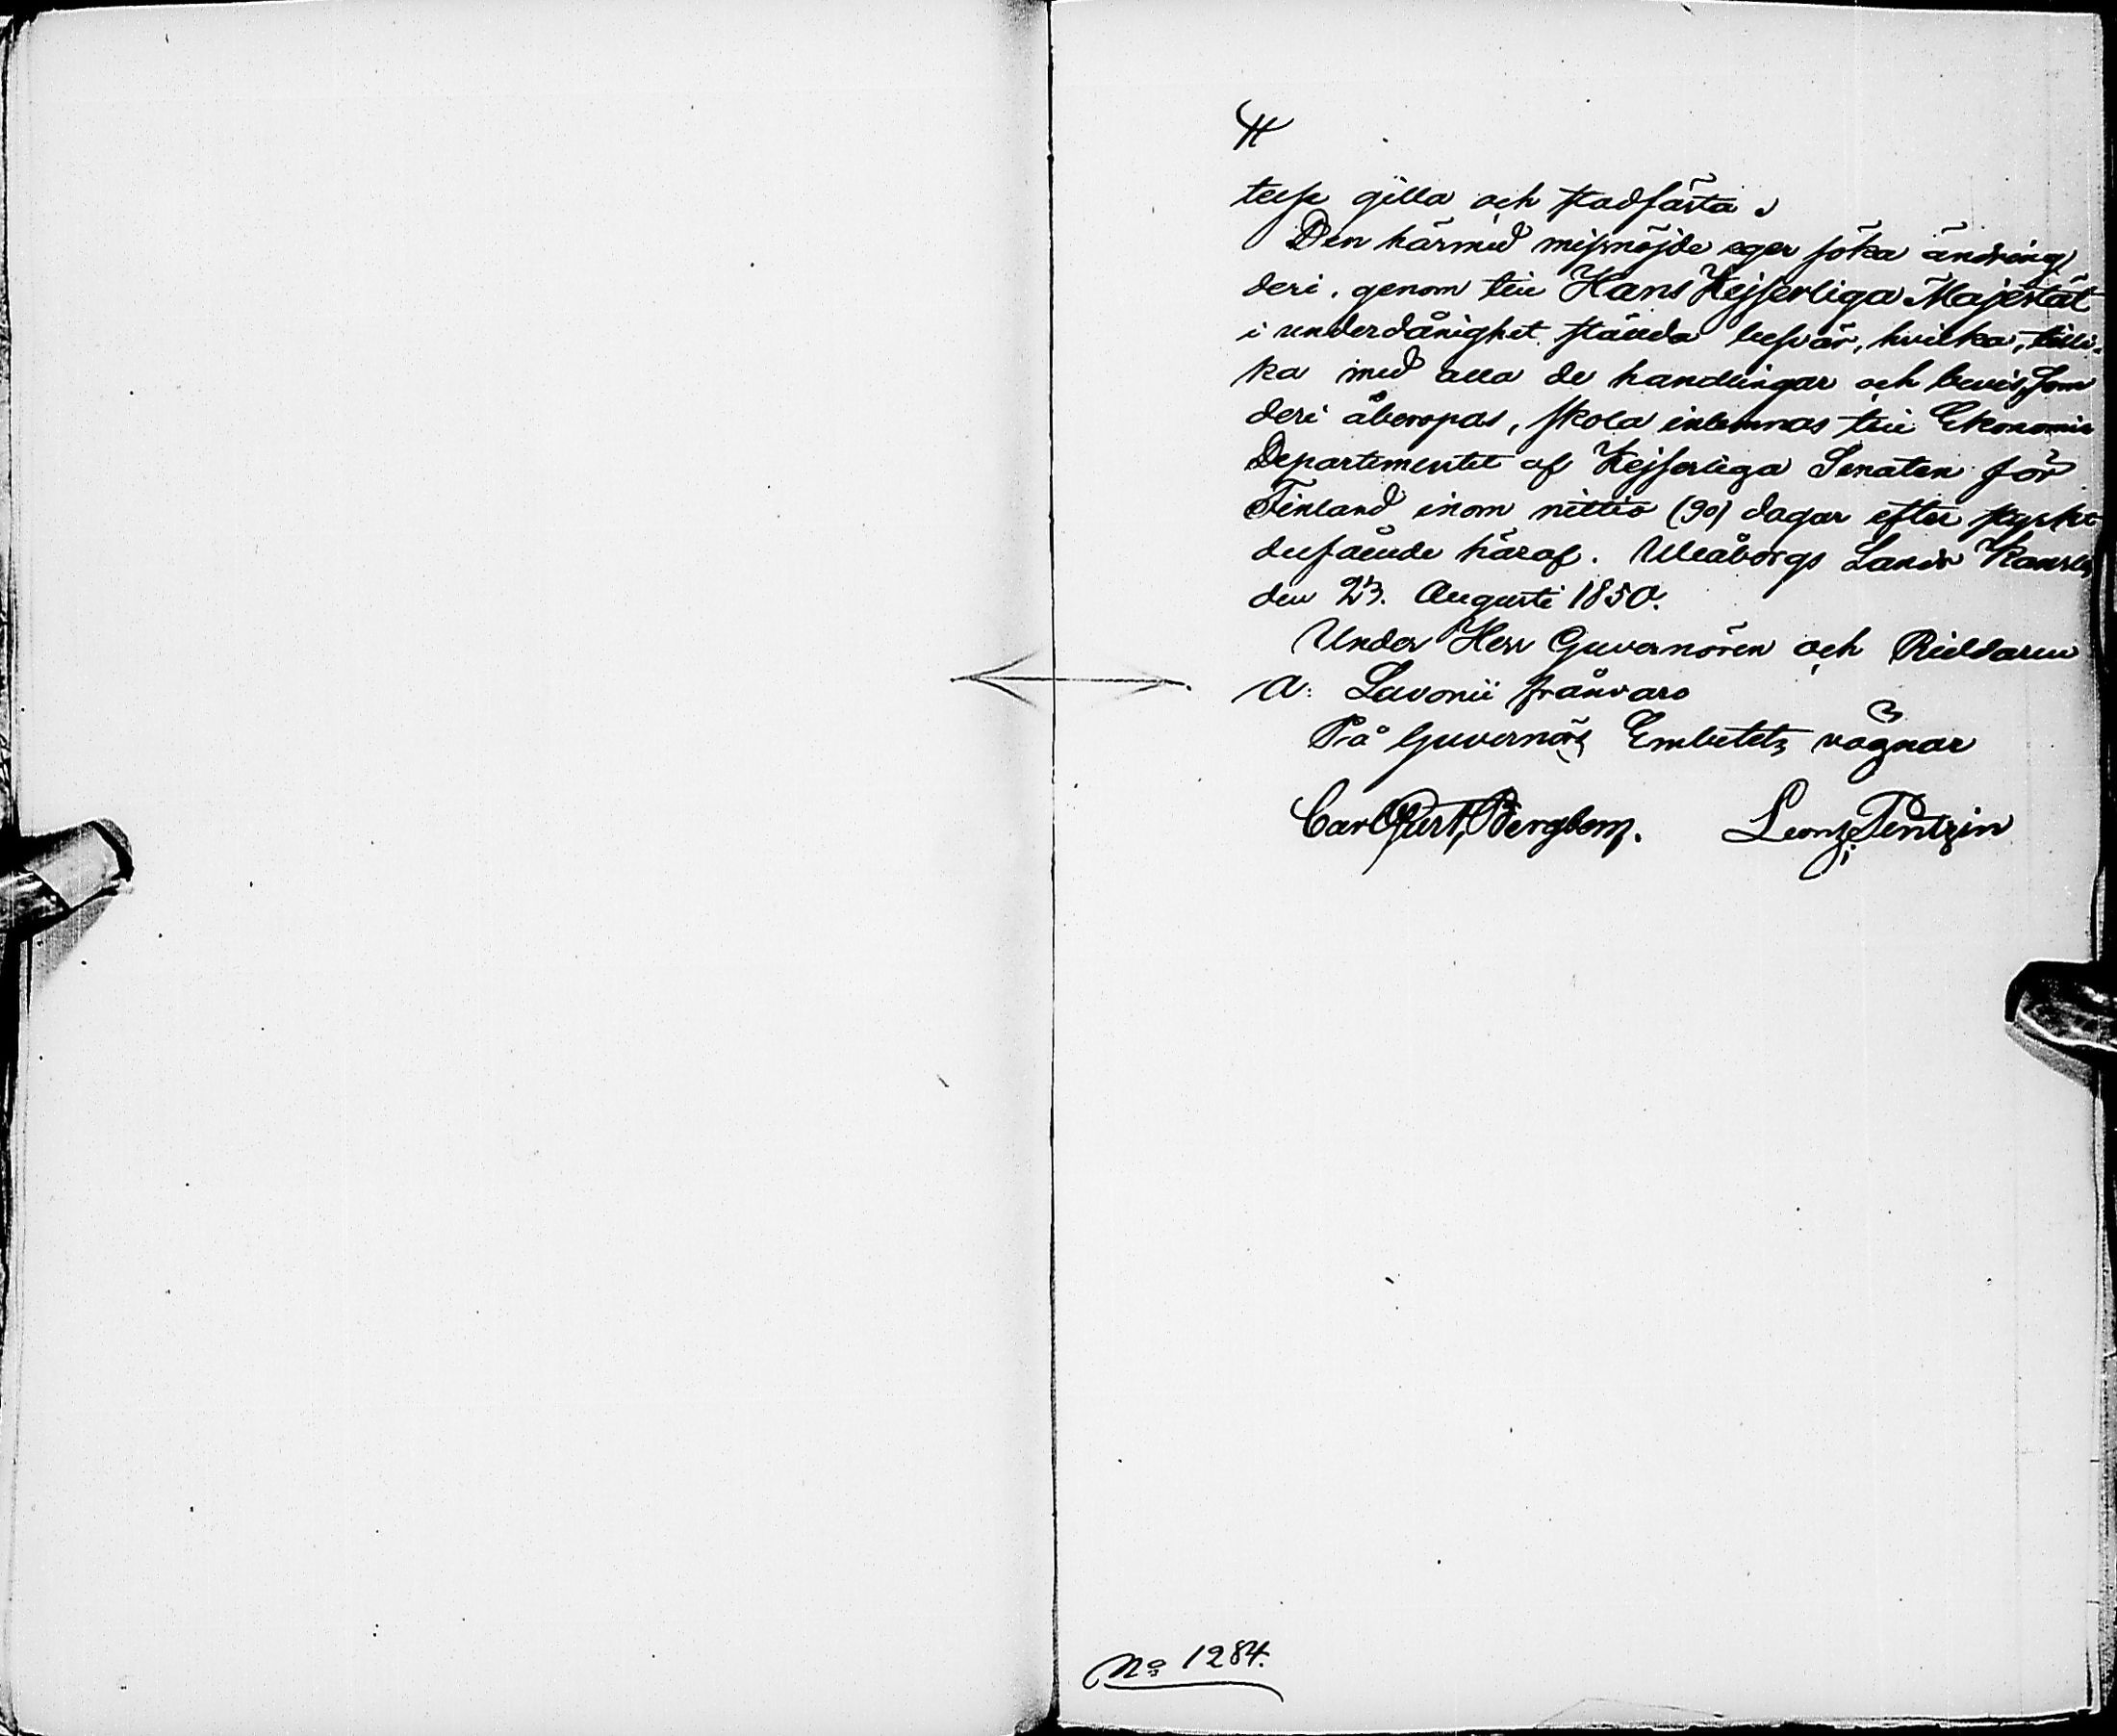 telse gilla och stadfästa.
Den härmed missnöjde eger söka ändring
deri, genom till Hans Kejserliga Majestät
i underdånighet stälda besvär, hvilka, tilli-
ka med alla de handlingar och bevis, som
deri åberopas, skola inlemnas till Ekonomie
Departementet af Kejserliga Senaten för
Finland inom nittio (90) dagar efter
delfående häraf. Uleåborgs Lands Kansli
den 23. Augusti 1850.
Under Herr Guvernören och Riddaren
A: Lavonii frånvaro
På Guvernörs Embetets vägnar
Carl Bergbom.
No 1284.